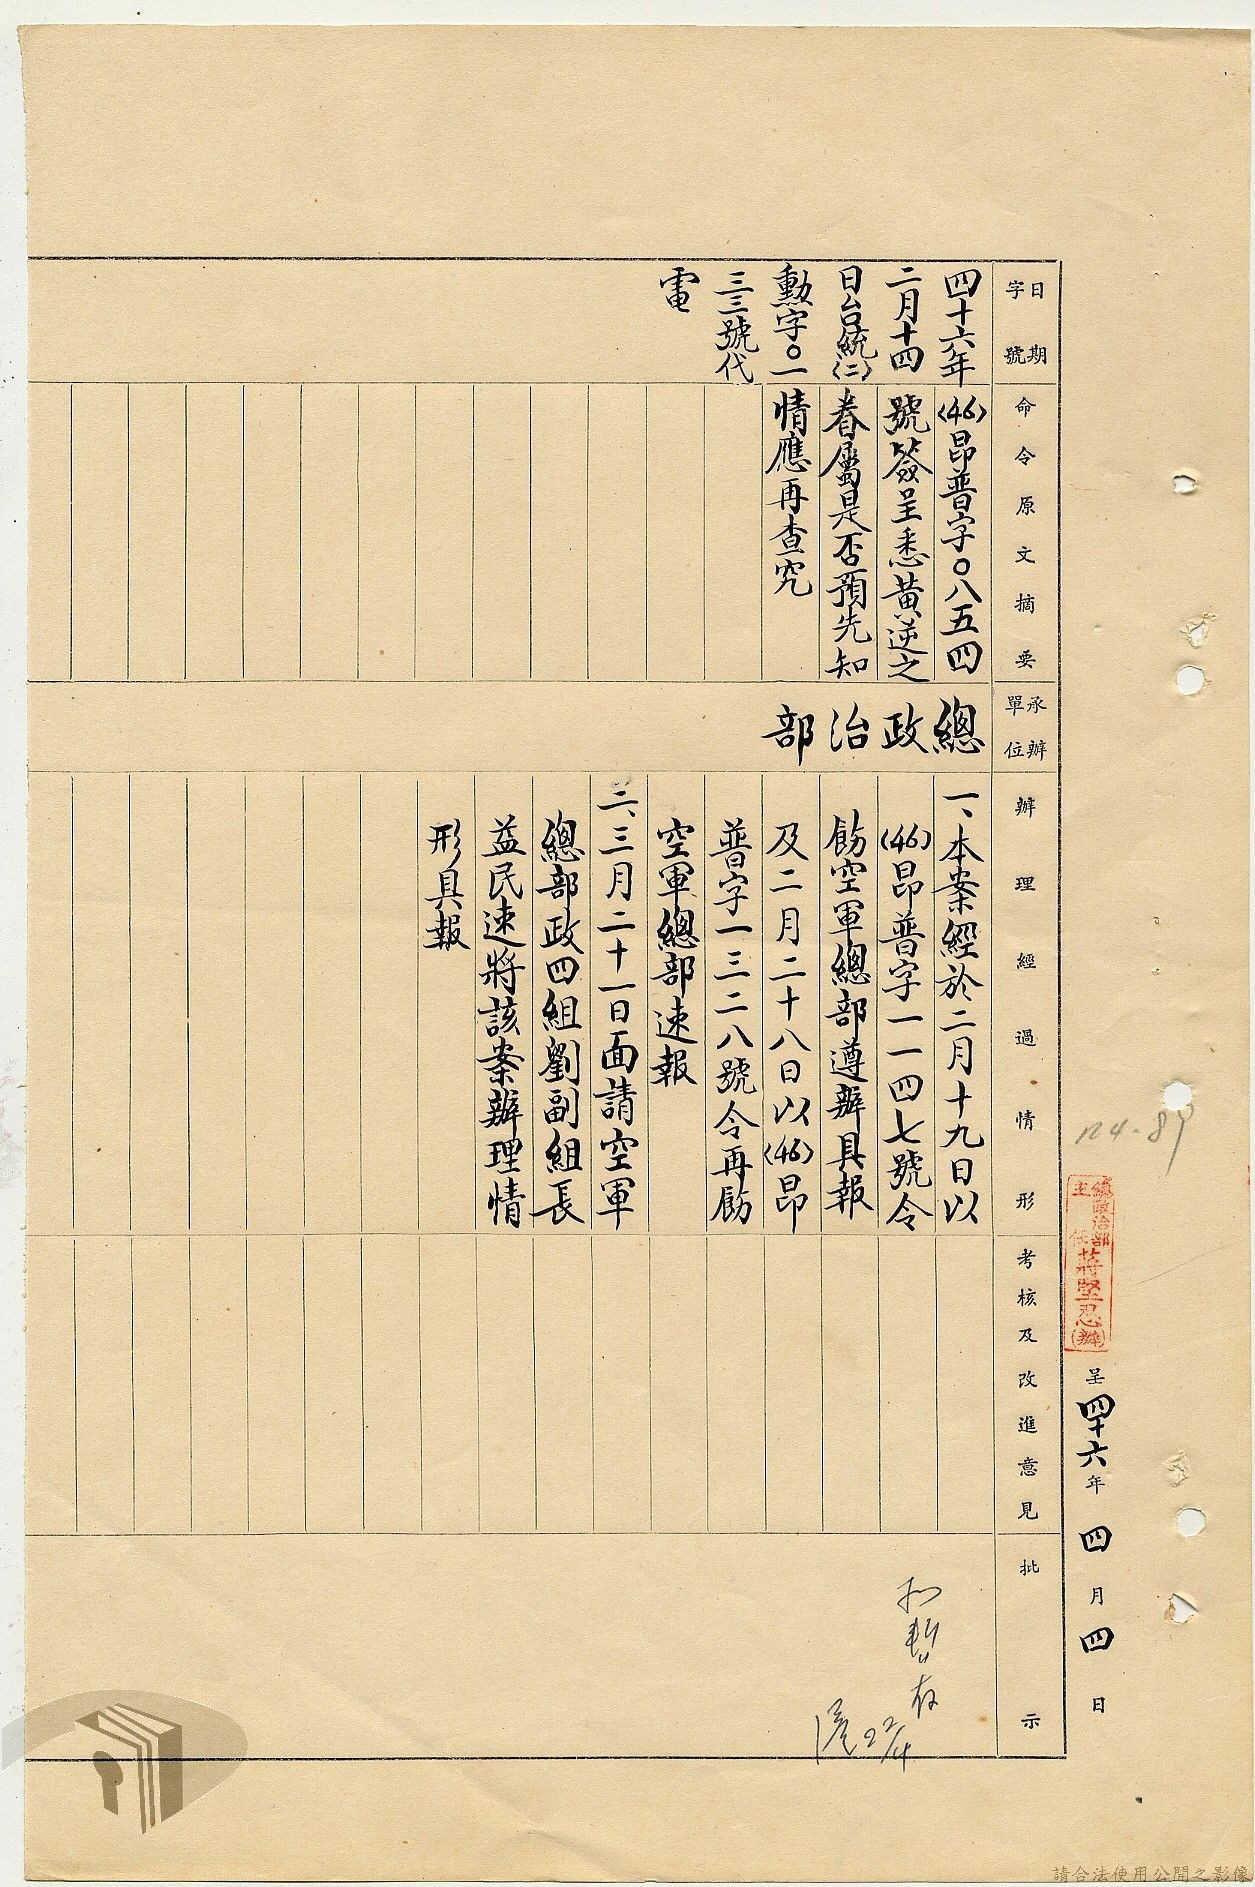 總政治部主任蔣堅忍(辦)呈四十六年四月四日
n4-89
日期
字號
四十六年
二月十四
日台統(二)
勳字○一
三三號代
電
命令原文摘要
(46)昂普字○八五四
號簽呈悉黃逆之
眷屬是否預先知
情應再查究
承辦
單位
總政治部
辦理經過情形
一、本案經於二月十九日以
(46)昂普字一一四七號令
飭空軍總部遵辦具報
及二月二十八日以(46)昂
普字一三二八號令再飭
空軍總部速報
二、三月二十一日面請空軍
總部政四組劉副組長
益民速將該案辦理情
形具報
考核及改進意見
批示
暫存
22/4
請合法使用公開之影像